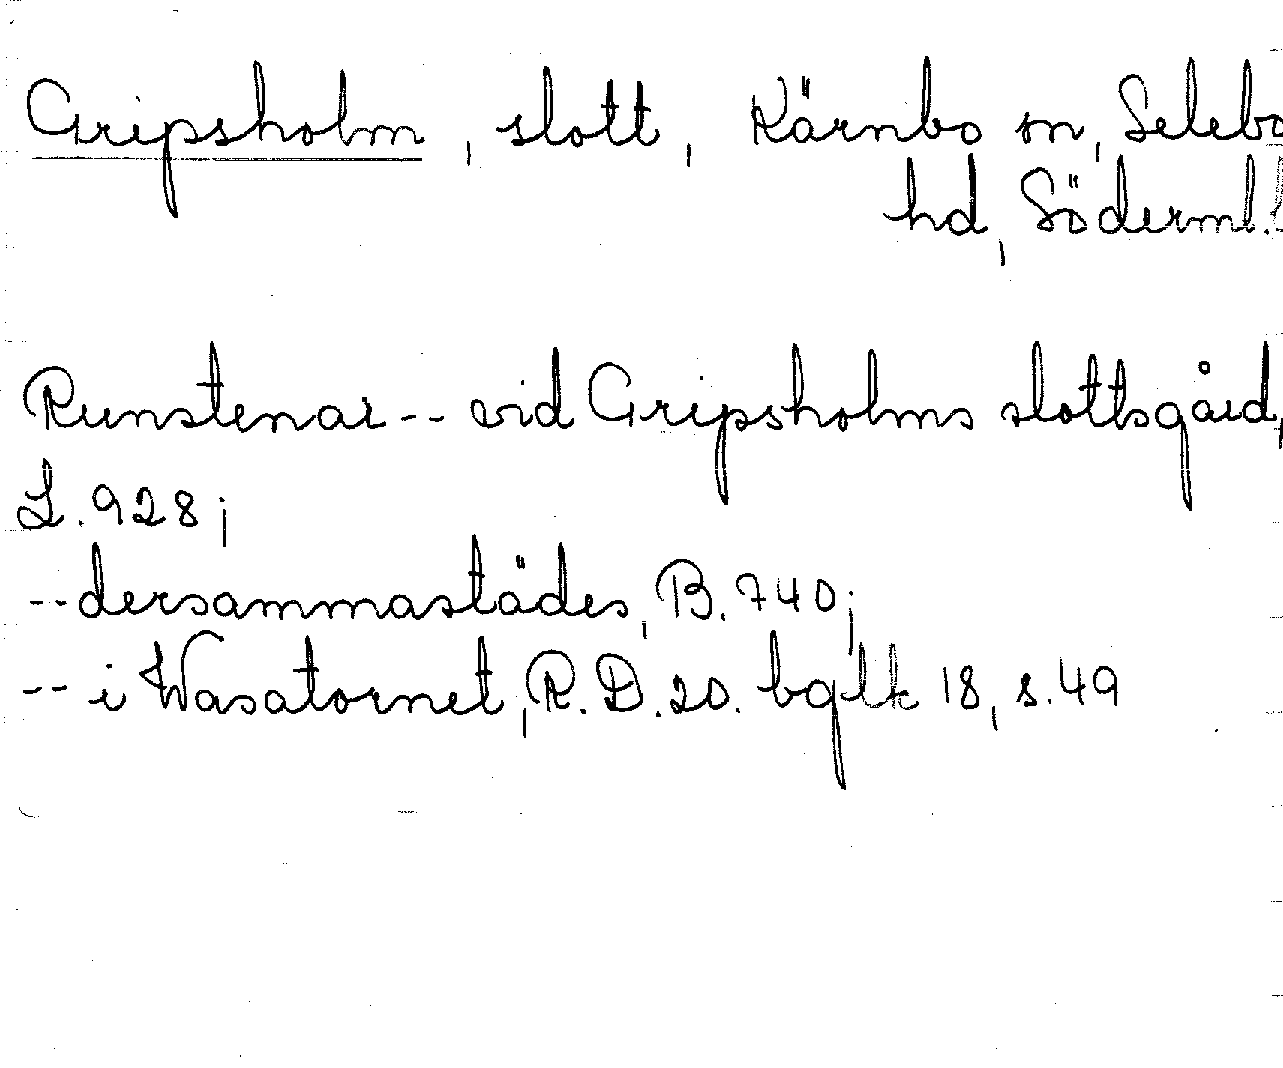 Gripsholm, slott, Kärnbo sn, Selebo
hd, Söderml.
Runstenar -- vid Gripsholms slottsgård,
L. 928;
-- dersammastädes, B. 740;
-- i Wasatornet, R. D. 20. bqlk 18, s. 49